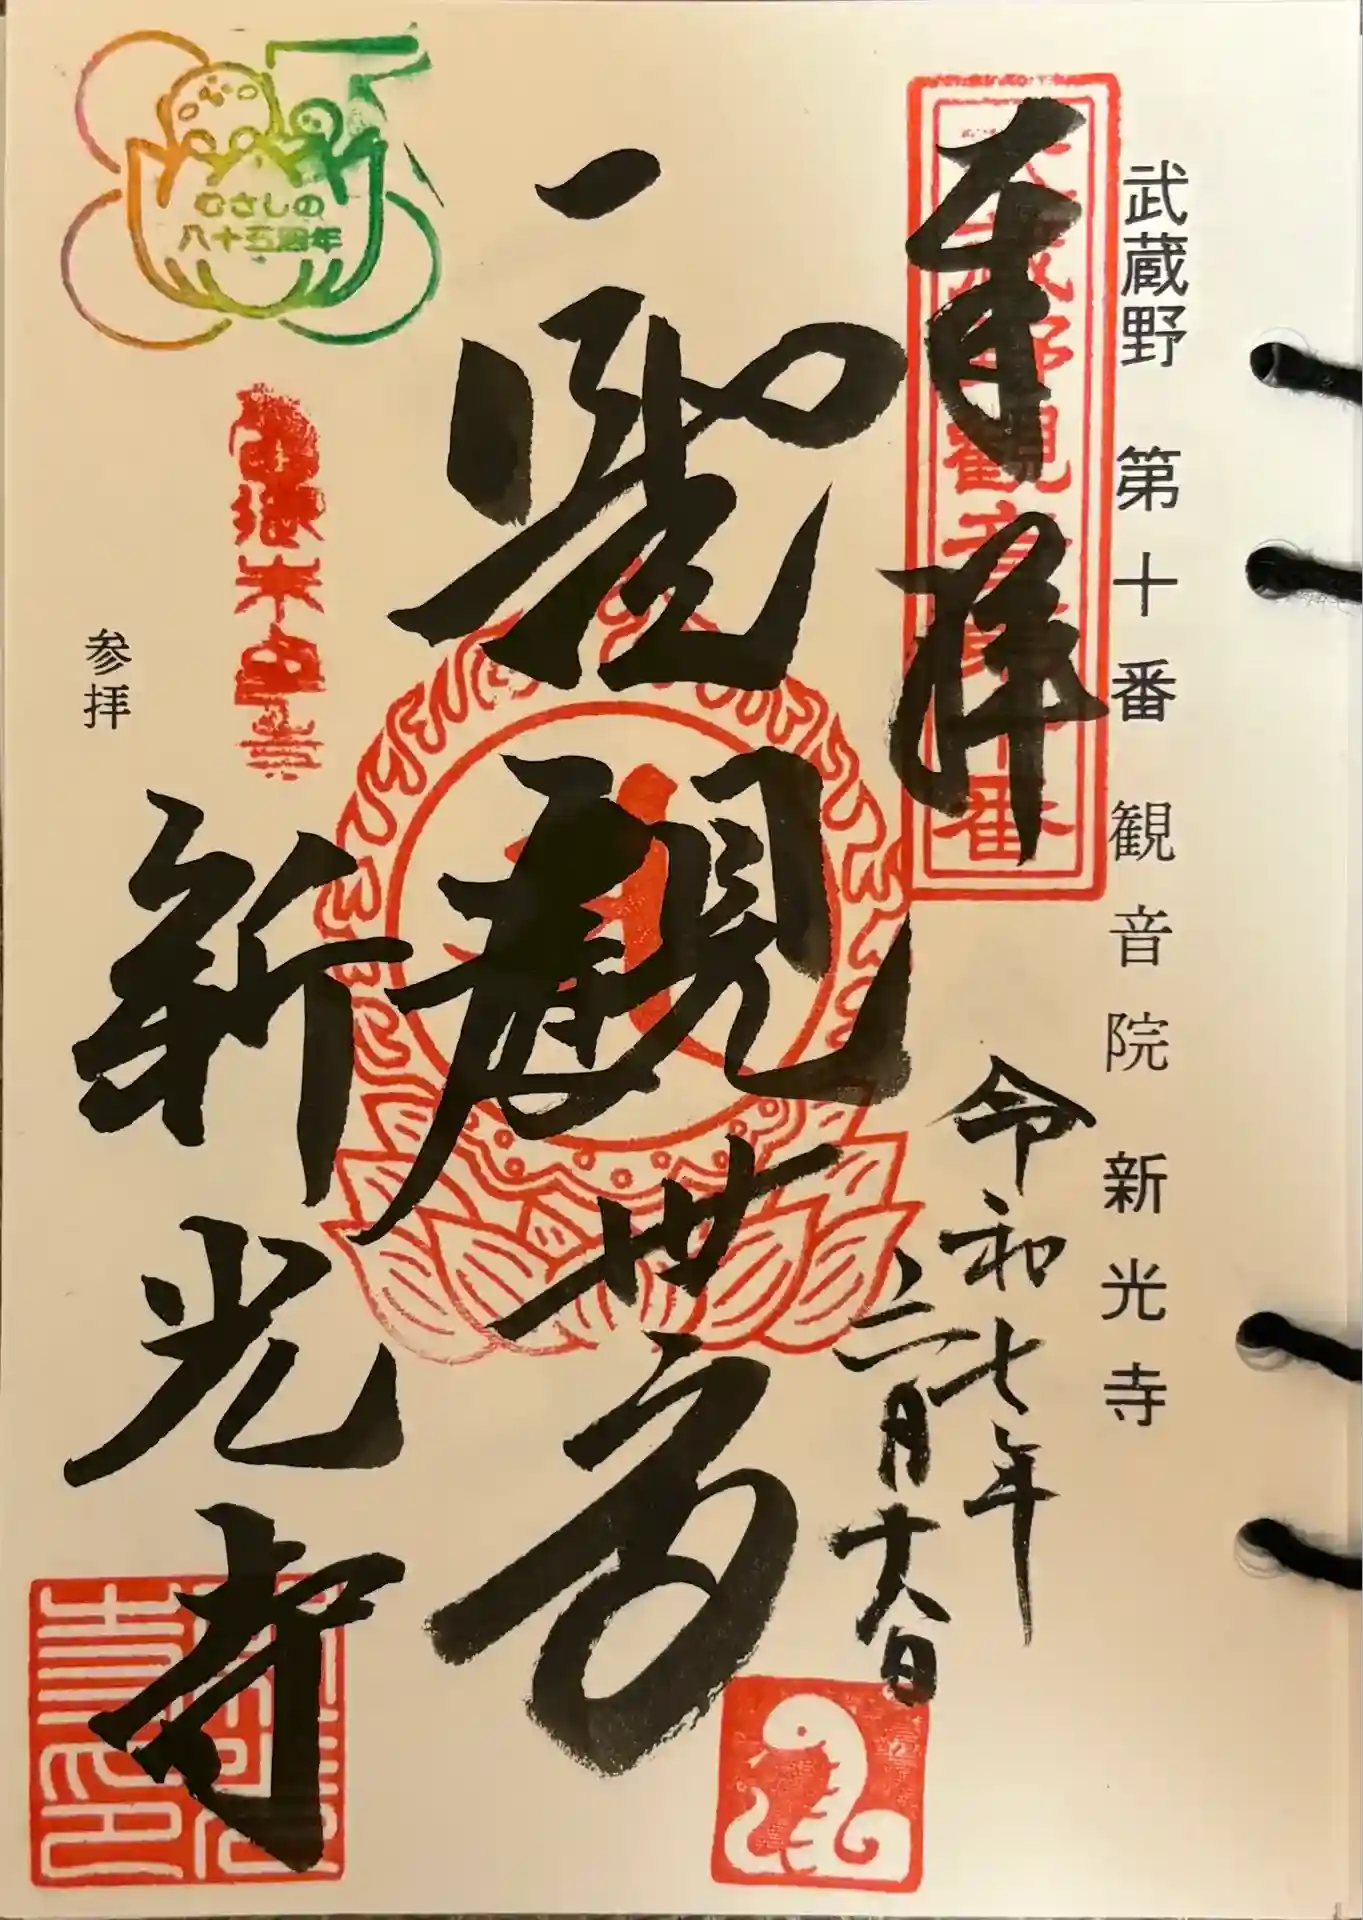 武蔵野 第十番 観音院 新光寺
武蔵野観音第十番
奉拝
令和七年
三月十八日
聖観世音
新光寺
参拝
むさしの
八十五周年